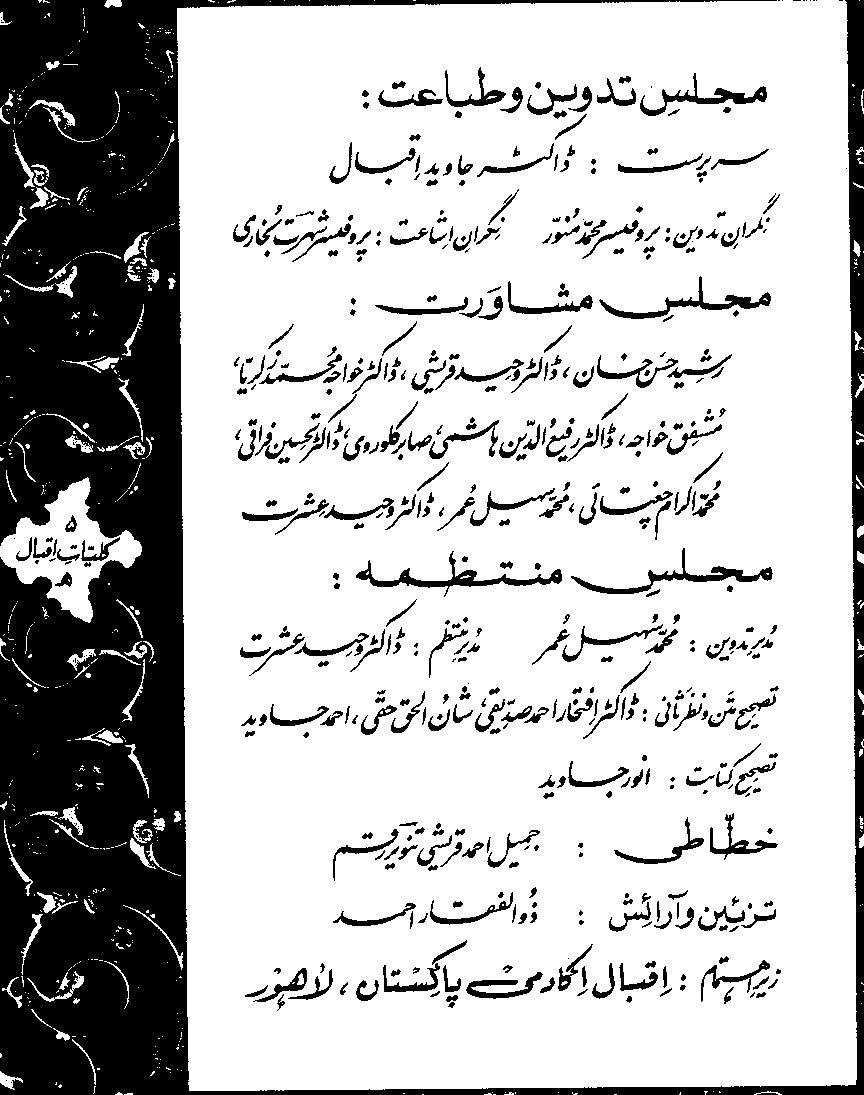 مجلسِ تدوین و طباعت :
سرپرست : ڈاکٹر جاوید اقبال
نگرانِ تدوین : پروفیسر محمّد منوّر نگرانِ اشاعت : پروفیسر شہرت بُخاری
مجلسِ مشاورت :
رشید حسَن خان ، ڈاکٹر وحید قریشی ، ڈاکٹر خواجہ محمّد زکریّا،
مُشفِق خواجہ، ڈاکٹر رفیع الدّین ہاشمی، صابر کلوروی، ڈاکٹر تحسین فراقی،
محمّد اکرام چغتائی ، محمّد سہیل عُمر ، ڈاکٹر وحید عشرت
مجلسِ منتظمہ :
مُدیرِ تدوین : محمّد سُہیل عُمر مُدیرِ منتظم : ڈاکٹر وحید عشرت
تصحیحِ متَن و نظرِ ثانی : ڈاکٹر افتخار احمد صدّیقی، شانُ الحق حقّی ، احمد جاوید
تصحیحِ کتابت : انور جاوید
خطّاطی : جمیل احمد قریشی تنویر رقم
تزئین و آرائش : ذُوالفقار احمد
زیرِ اہتمام : اِقبال اکادمی پاکِستان ، لاہور
۵
کلیّاتِ اِقبال
۵